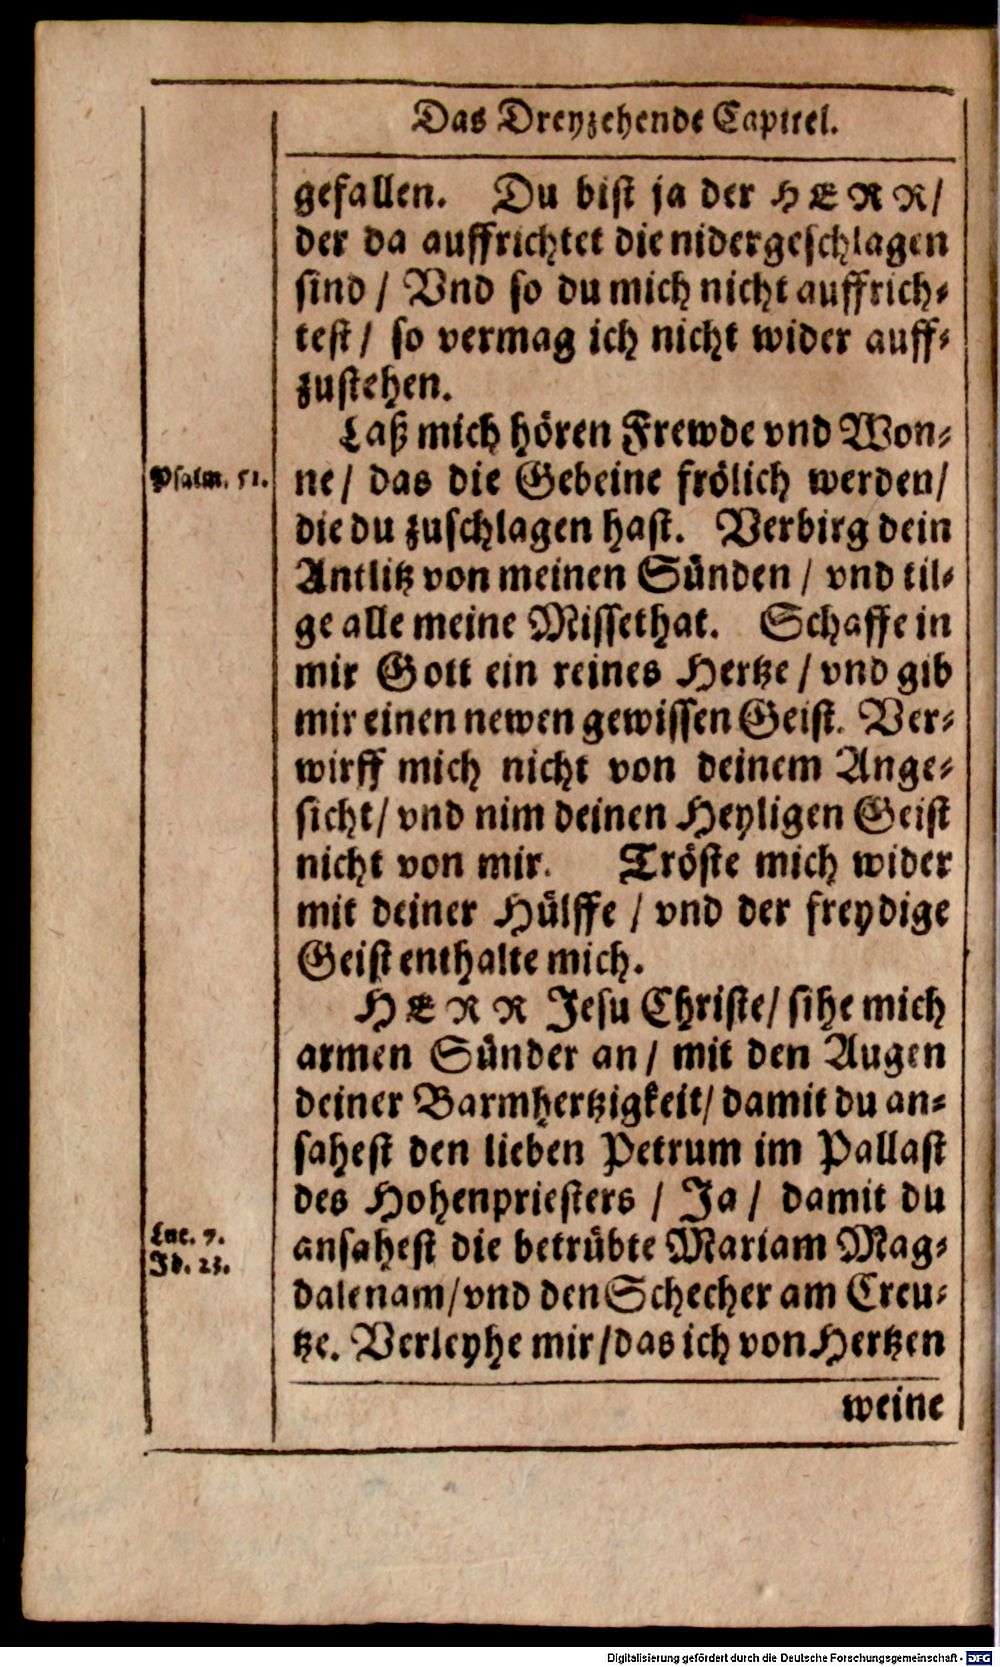 Das Dreyzehende Capittel.
gefallen. Du bist ja der HERR/
der da auffrichtet die nidergeschlagen
sind / Vnd so du mich nicht auffrich-
test / so vermag ich nicht wider auff-
zustehen.
Laß mich hören Frewde vnd Won-
Psalm. 51.
ne / das die Gebeine frölich werden/
die du zuschlagen hast. Verbirg dein
Antlitz von meinen Sünden / vnd til-
ge alle meine Missethat. Schaffe in
mir Gott ein reines Hertze / vnd gib
mir einen newen gewissen Geist. Ver-
wirff mich nicht von deinem Ange-
sicht/ vnd nim deinen Heyligen Geist
nicht von mir. Tröste mich wider
mit deiner Hülffe / vnd der freydige
Geist enthalte mich.
HERR Jesu Christe/ sihe mich
armen Sünder an / mit den Augen
deiner Barmhertzigkeit/ damit du an-
sahest den lieben Petrum im Pallast
des Hohenpriesters / Ja / damit du
Luc. 7.
Jd. 23.
ansahest die betrübte Mariam Mag-
dalenam/ vnd den Schecher am Creu-
tze. Verleyhe mir /das ich von Hertzen
weine
Digitalisierung gefördert durch die Deutsche Forschungsgemeinschaft - DFG